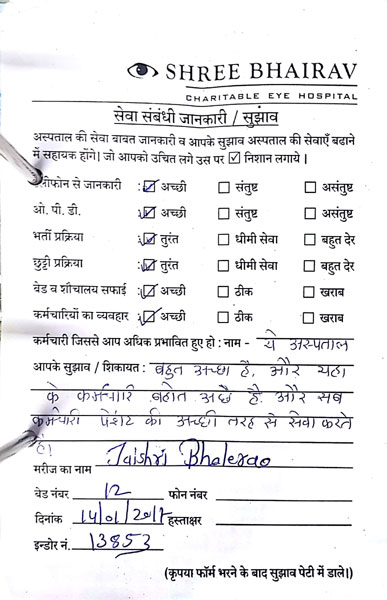 SHREE BHAIRAV
CHARITABLE EYE HOSPITAL
सेवा संबंधी जानकारी / सुझाव
अस्पताल की सेवा बाबत जानकारी व आपके सुझाव अस्पताल की सेवाएँ बढाने
में सहायक होंगे। जो आपको उचित लगे उस पर ☑ निशान लगाये।
लीफोन से जानकारी : ☑ अच्छी ☐ संतुष्ट ☐ असंतुष्ट
ओ. पी. डी. : ☑ अच्छी ☐ संतुष्ट ☐ असंतुष्ट
भर्ती प्रक्रिया : ☑ तुरंत ☐ धीमी सेवा ☐ बहुत देर
छुट्टी प्रक्रिया : ☑ तुरंत ☐ धीमी सेवा ☐ बहुत देर
बेड व शौचालय सफाई : ☑ अच्छी ☐ ठीक ☐ खराब
कर्मचारियों का व्यवहार : ☑ अच्छी ☐ ठीक ☐ खराब
कर्मचारी जिससे आप अधिक प्रभावित हुए हो : नाम - ये अस्पताल
आपके सुझाव / शिकायत : बहुत अच्छा है, और यहा
के कर्मचारि बहोत अछे है. और सब
कर्मचारी पेशंट की अच्छी तरह से सेवा करते
है।
मरीज का नाम Jaishri Bhalerao
बेड नंबर 12 फोन नंबर
दिनांक 14/01/2017 हस्ताक्षर
इन्डोर नं. 13853
(कृपया फॉर्म भरने के बाद सुझाव पेटी में डाले।)